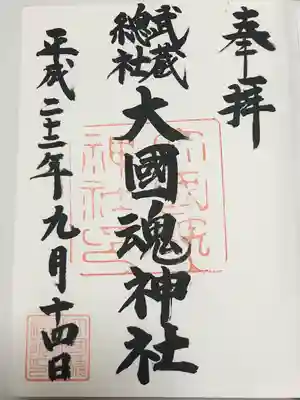 奉拝
武蔵
總社
大國魂神社
平成二十二年九月十四日